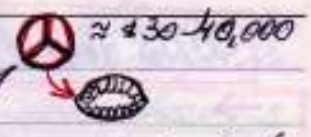 ≈ $30-40,000